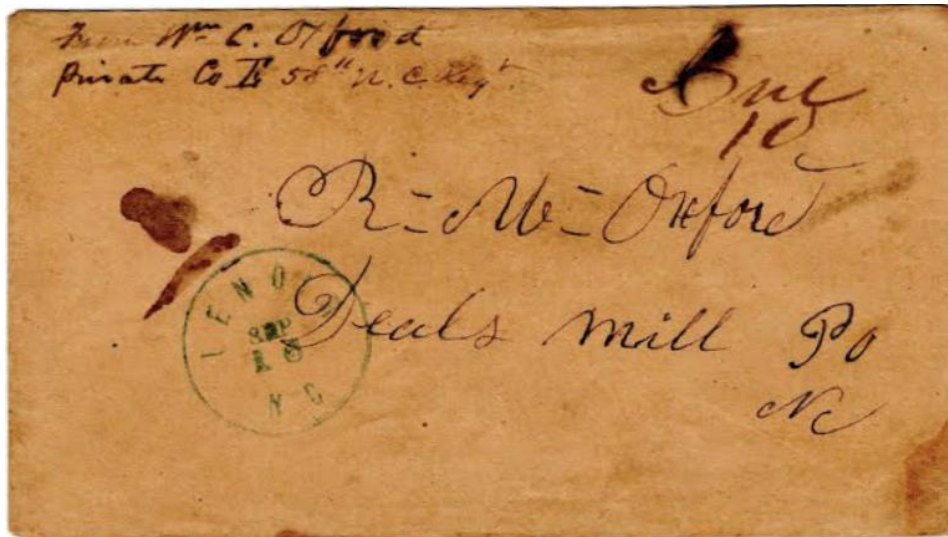 From Wm C. Oxford
Private Co E 58" N. C. Regt.
Due
10
R - W - Oxford
Deals Mill Po
Nc
LENO
SEP
N C